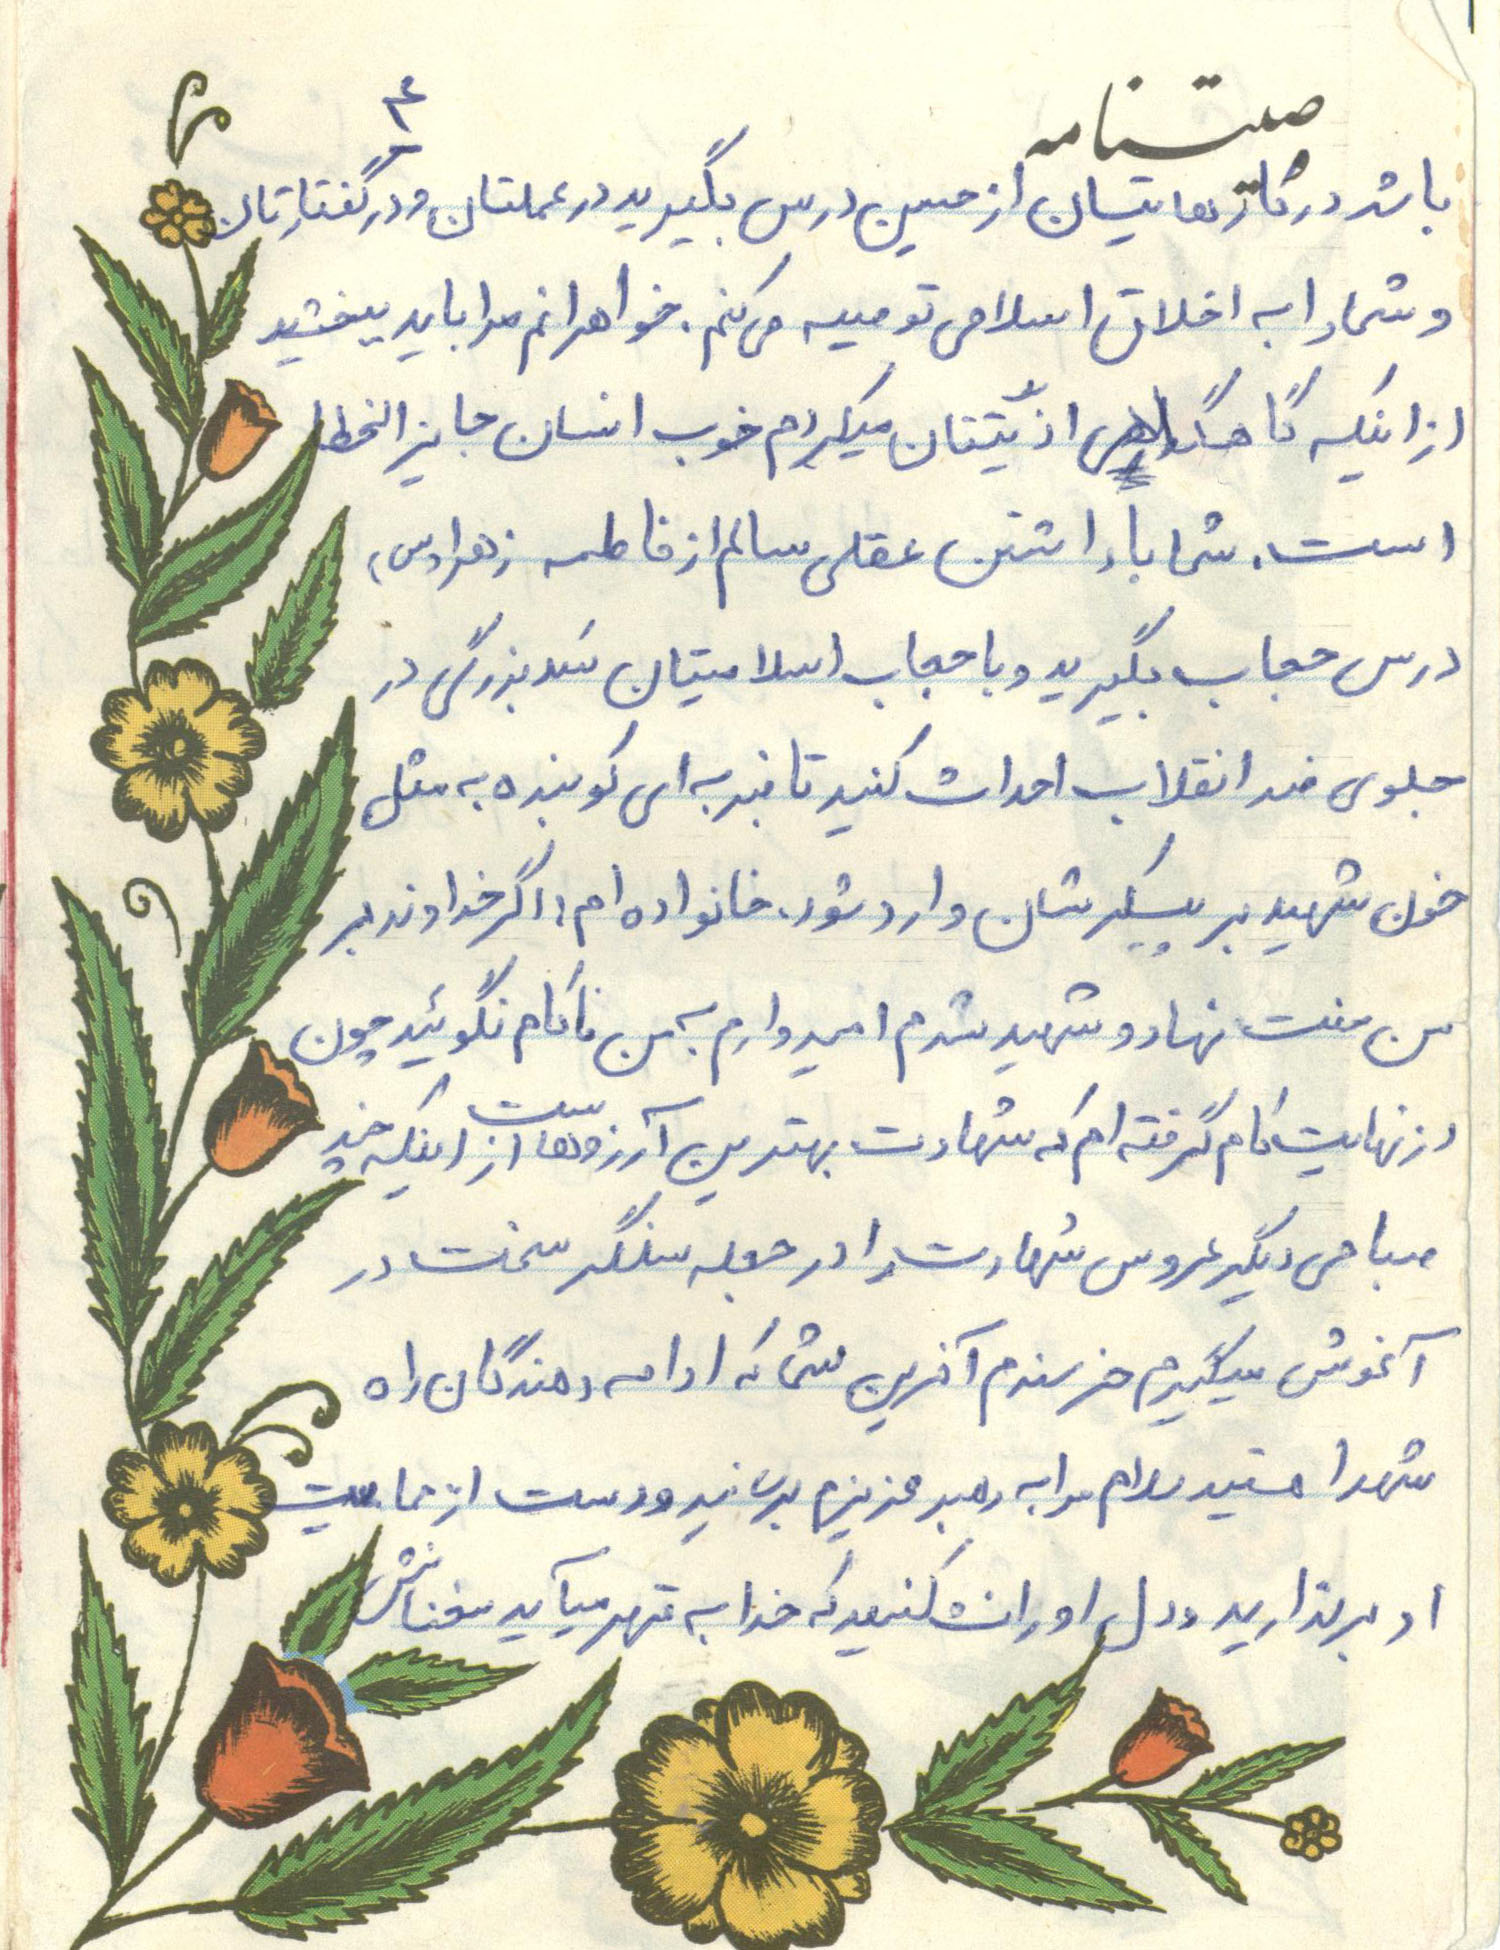 وصیتنامه
۴
باشد در کارهایتان از حسین درس بگیرید در عملتان و در گفتارتان
و شما را به اخلاق اسلامی توصیه می کنم. خواهرانم مرا باید ببخشید
از اینکه گاهگاهی اذیّتتان میکردم خوب انسان جایز الخطا
است. شما با داشتن عقلی سالم از فاطمه زهرا (س)
درس حجاب بگیرید و با حجاب اسلامیتان سَد بزرگی در
جلوی ضد انقلاب احداث کنید تا ضربه ای کوبنده به مثل
خون شهید بر پیکرشان وارد شود. خانواده ام: اگر خداوند بر
من منت نهاد و شهید شدم امیدوارم به من ناکام نگوئید چون
در نهایت کام گرفته ام که شهادت بهترین آرزوهاست از اینکه چند
صباحی دیگر عروس شهادت را در حجله سنگر سخت در
آغوش میگیرم خرسندم آفرین شما که ادامه دهندگان راه
شهدا هستید سلام مرا به رهبر عزیزم برسانید و دست از حمایت
او برندارید و دل او را نشکنید که خدا به قهر میآید سخنانش